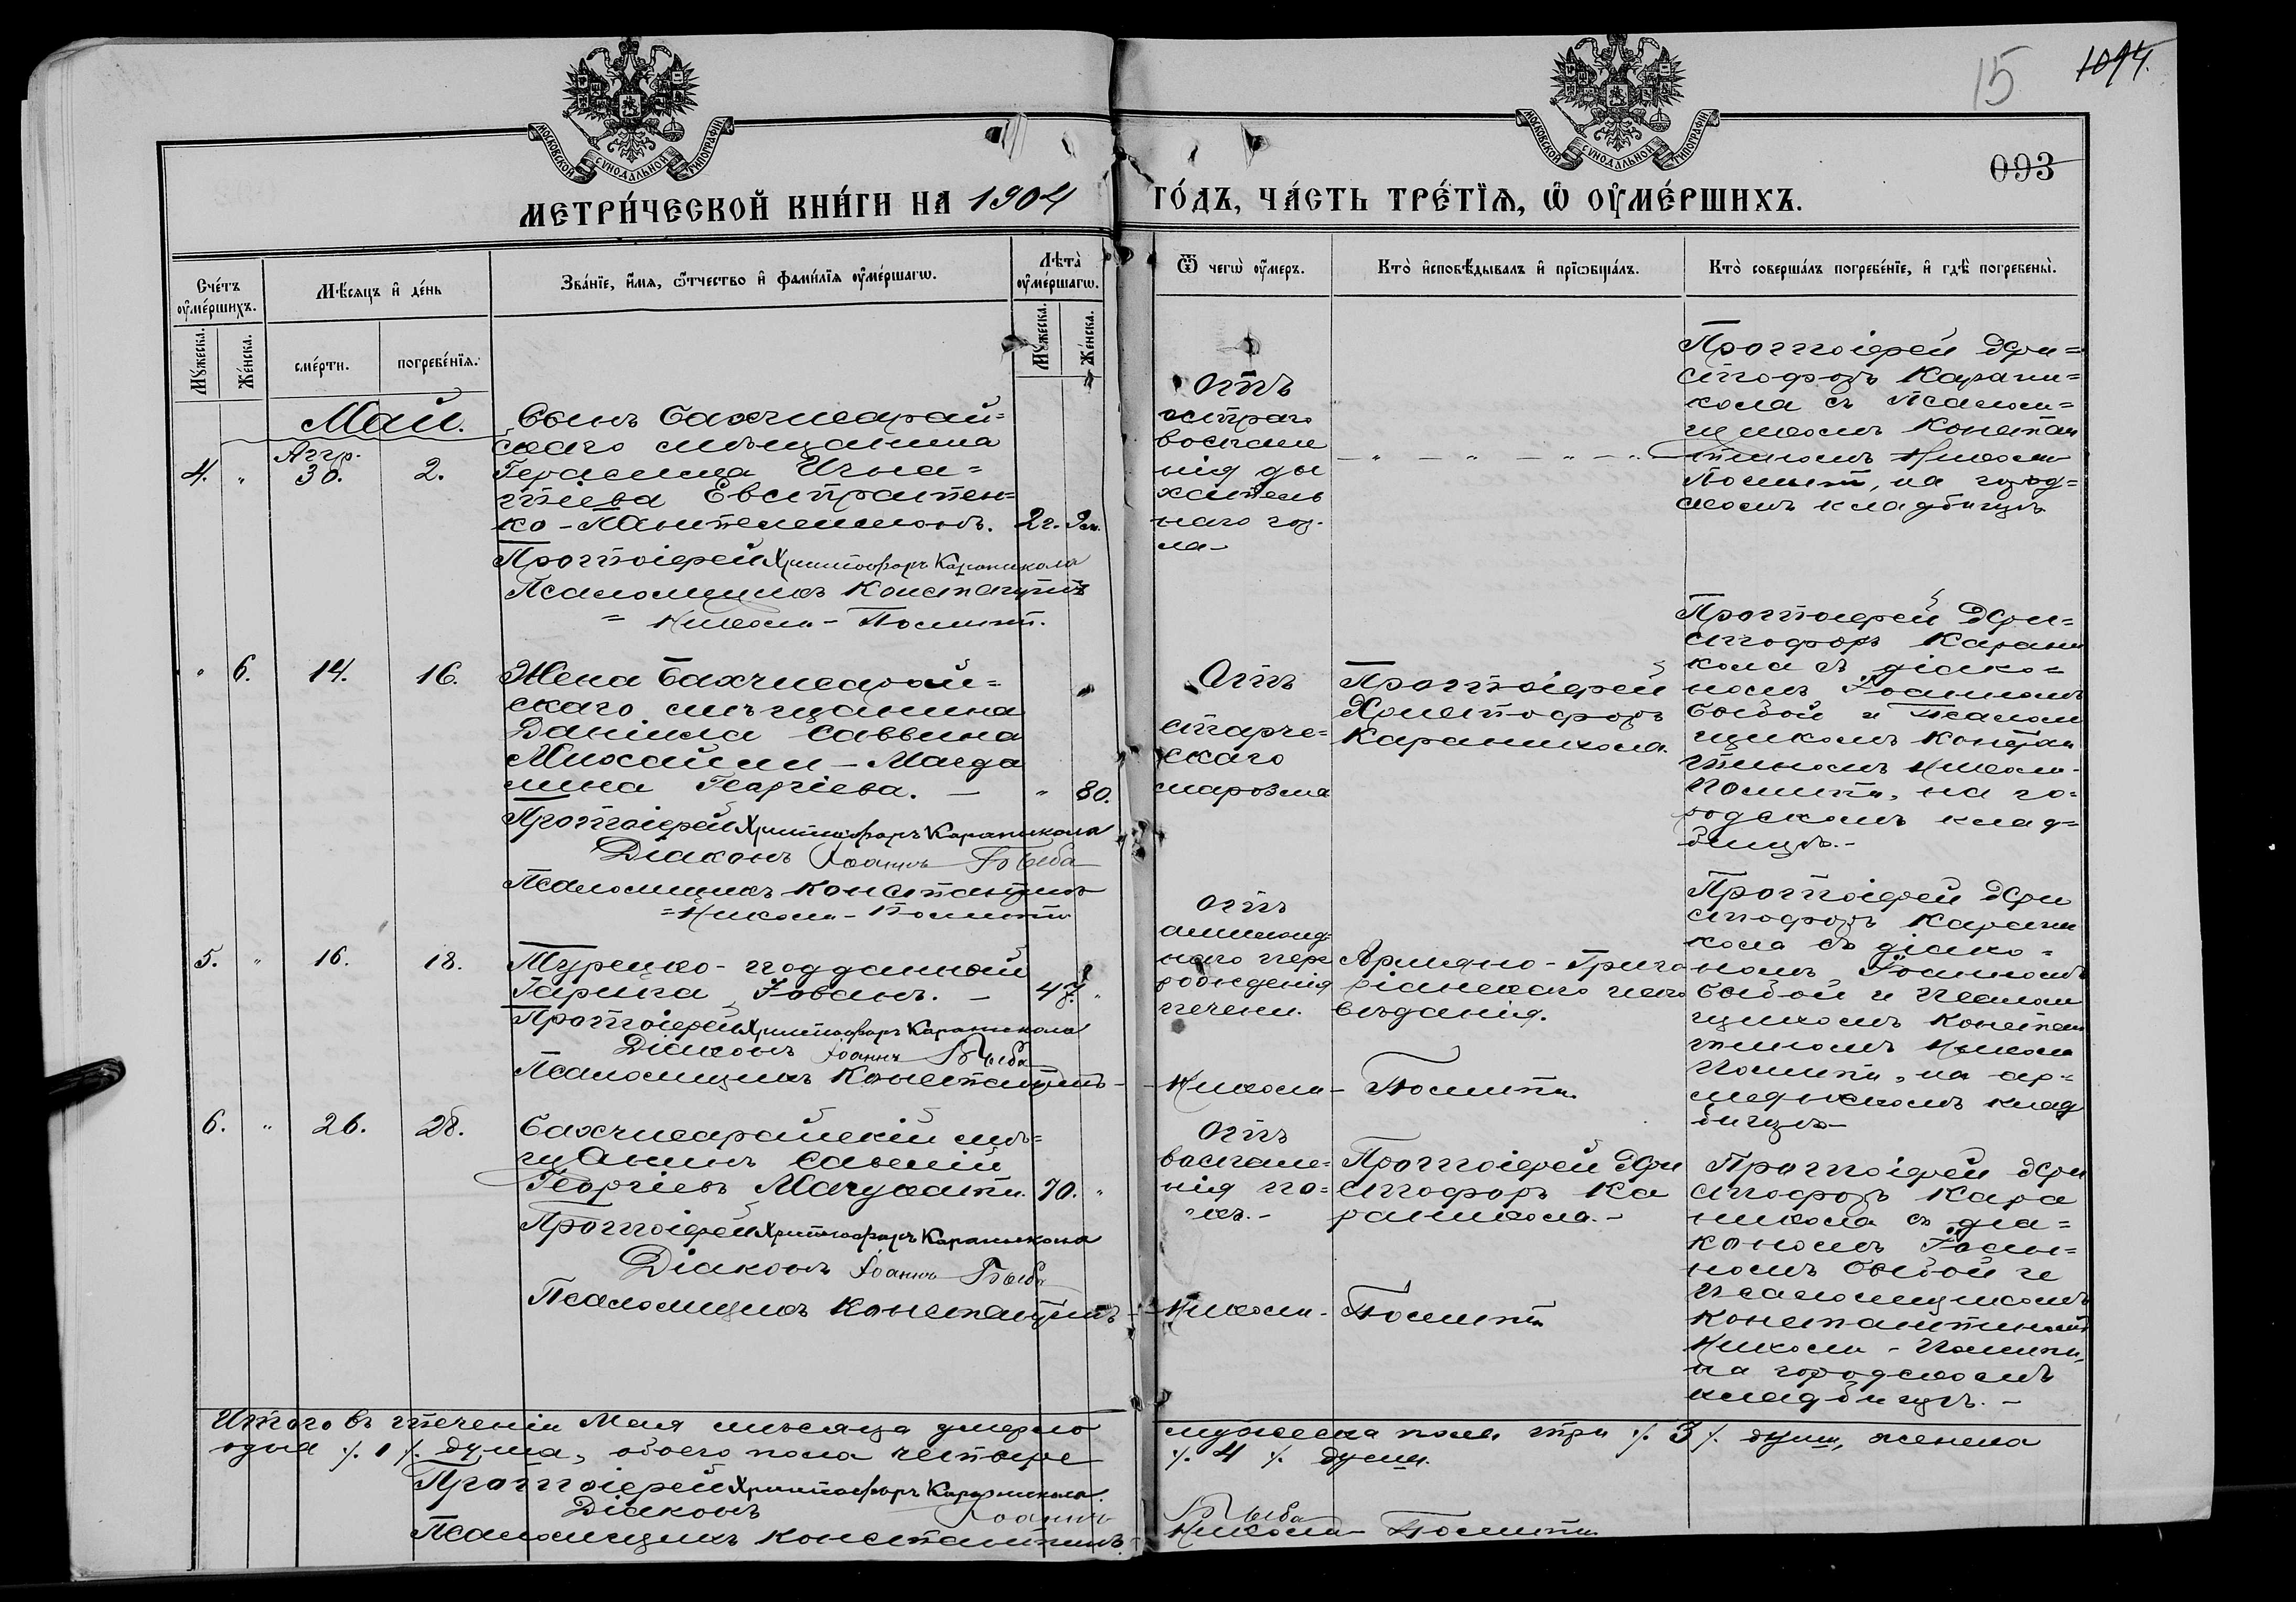 15 1094.
093
МОСКОВСКОЙ СѴНОДАЛЬНОЙ ТИПОГРАФІИ
МОСКОВСКОЙ СѴНОДАЛЬНОЙ ТИПОГРАФІИ
МЕТРИ́ЧЕСКОЙ КНИ́ГИ НА 1904 ГО́ДЪ, ЧА́СТЬ ТРЕ́ТІѦ, Ѡ ОУМЕ́РШИХЪ.
Сче́тъ оуме́ршихъ.
Мѣ́сяцъ и де́нь
Зва́ніе, и́мя, ѻ́тчество и фами́лія оуме́ршагѡ.
Лѣта̀ оуме́ршагѡ.
Ѿ чегѡ̀ оу́меръ.
Кто̀ и́сповѣ́дывалъ и прїѡбща́лъ.
Кто̀ соверша́лъ погребе́ніе, и гдѣ̀ погребены̀.
Мꙋ́жеска.
Же́нска.
сме́рти.
погребе́нїя.
Мꙋ́жеска.
Же́нска.
Май.
4. " Апр. 30. 2.
Сынъ Бахчисарай=
скаго мѣщанина
Герасима Игна=
тіева Евстратен=
ко - Пантелеимонъ. 2 г. 9 м.
Протоіерей Христофоръ Караникола
Псаломщикъ Константинъ
= Николи - Помити.
Отъ
остраго
воспале
нія ды
хатель
наго гор.
ла -
— " — " — " —
Протоіерей Хри=
стофоръ Карани=
кола съ псалом=
щикомъ Констан
тиномъ Николи
Помити, на город=
скомъ кладбищѣ
" 6. 14. 16.
Жена Бахчисарай=
скаго мѣщанина
Даніила Саввина
Михайли - Магда
лина Георгіева. — " 80.
Протоіерей Христофоръ Караникола
Діаконъ Іоаннъ Быба
Псаломщикъ Константинъ
= Николи - Помити
Отъ
старче=
скаго
маразма
Протоіерей
Христофоръ
Караникола.
Протоіерей Хри=
стофоръ Карани
кола съ діако=
номъ Іоанномъ
Быбой и Псалом
щикомъ Констан
тиномъ Николи-
Помити, на го=
родскомъ клад=
бищѣ.-
5. " 16. 18.
Турецко-подданный
Гарика Іованъ. — 47. "
Протоіерей Христофоръ Караникола
Діаконъ Іоаннъ Быба
Псаломщикъ Константинъ - Николи - Помити.
Отъ
амилоид=
наго пере
рожденія
печени.
Армяно-Григо
ріанскаго испо
вѣданія.
Протоіерей Хри
стофоръ Карани
кола съ діако=
номъ Іоанномъ
Быбой и Псалом
щикомъ Констан
тиномъ Николи
Помити, на ар=
мянскомъ клад
бищѣ-
6. " 26. 28.
Бахчисарайскій мѣ=
щанинъ Савелій
Георгіевъ 70. "
Протоіерей Христофоръ Караникола
Діаконъ Іоаннъ Быба
Псаломщикъ Константинъ - Николи - Помити
Отъ
воспале=
нія по=
чекъ.-
Протоіерей Хри
стофоръ Ка
раникола.-
Протоіерей Хри
стофоръ Кара
никола съ діа=
кономъ Іоан=
номъ Быбой и
псаломщикомъ
Константиномъ
Николи - Помити,
на городскомъ
кладбищѣ. -
Итого въ теченіи Мая мѣсяца умерло мужеска пола три ./. 3 ./. души, женска
одна ./. 1 ./. душа, обоего пола четыре ./. 4 ./. души.
Протоіерей Христофоръ Караникола.
Діаконъ Іоаннъ Быба
Псаломщикъ Константинъ - Николи - Помити